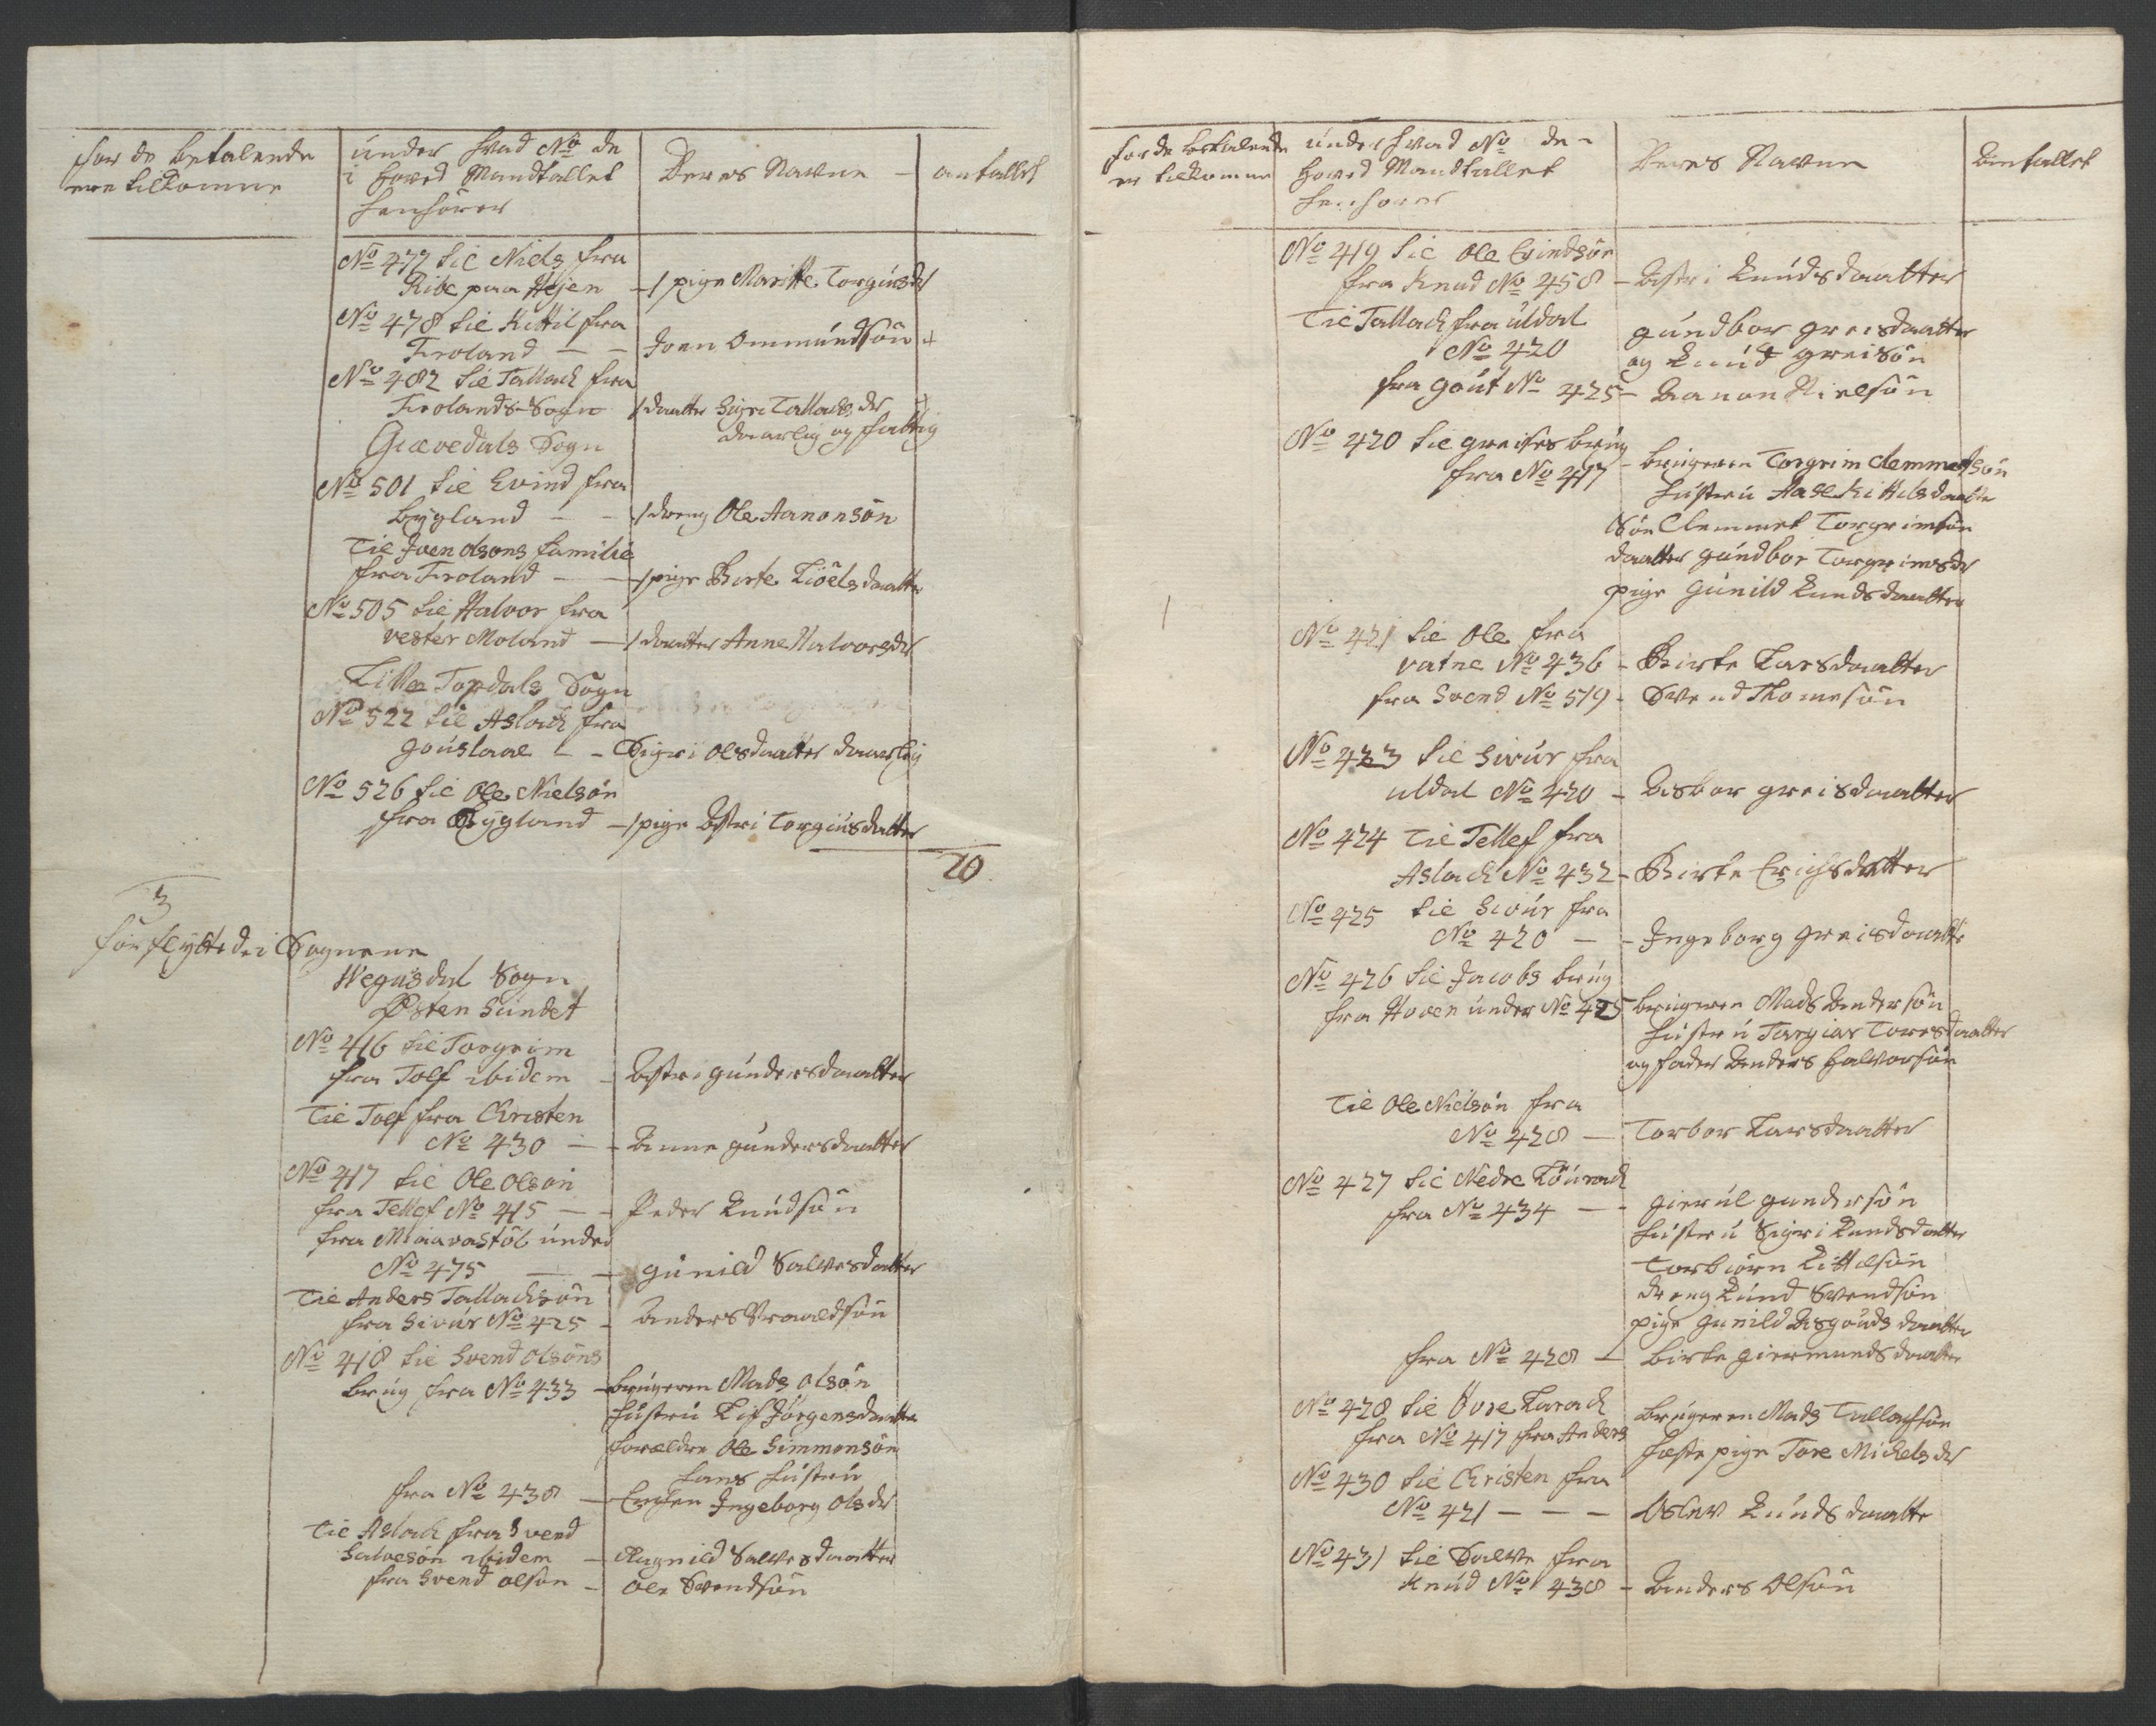 for de betalende
ere tilkomne
under hvad No de
i Hoved Mandtallet
henhører
Deres Navne -
antallet
No 477 til Niels fra
Ribe paa Hejen - 1 pige Maritte Torgiusdr
No 478 til Kittil fra
Froland - - Joen Ommundsøn +
No 482 til Tallack fra
Frolands Sogn 1 daatter Sigri Tallacksdr
daarlig og fattig
Giævedals Sogn
No 501 til Evind fra
Bygland - - 1 dreng Ole Aanonsøn
Til Joen Olsøns familie
fra Froland - - 1 pige Berte Kiøelsdaatter
No 505 til Halvor fra
vester Moland - 1 daatter Anne Halvorsdr
Lille Topdals Sogn
No 522 til Aslack fra
gouslaae - - Sigri Olsdaatter daarlig
No 526 til Ole Nielsøn
fra Bygland - 1 pige Astri Torgiusdatter
20
3
forflyttede i Sognene
Wegusdal Sogn
Østen Sundet
No 416 til Torgrim
fra Tolf ibidem - Astri gundersdaatter
Til Tolf fra Christen
No 430 - - Anne gundersdaatter
No 417 til Ole Olsøn
fra Tellef No 415 - - Peder Knudsøn
fra Miaavastøl under
No 475 - - gunild Salvesdatter
Til Anders Tallachsøn
fra Sivur No 425 - Anders Vraaldsøn
No 418 til Svend Olsøns
brug fra No 433 - brugeren Mads Olsøn
hustru Lif Jørgensdaatter
forældre Ole Simmonsøn
hans hustru
fra No 438 - Enken Ingeborg Olsdr
Til Aslach fra Svend
Salvesøn ibidem - Ragnild Salvesdaatter
fra Svend Olsøn - Ole Svendsøn
for de betalende
er tilkomne
under hvad No de -
Hoved Mandtallet
henhører
Deres Navne
Antallet
No 419 til Ole Evindsøn
fra Knud No 458 - Astri Knudsdaatter
Til Tallach fra uldal
No 420
gundbor greisdaatter
og Knud greisøn
fra gout No 425 - Aanon Nielsøn
No 420 til greises brug
fra No 417 - brugeren Torgrim Clemmetsøn
hustru Aase Kittilsdaatter
Søn Clemmet Torgrimsøn
daatter gundbor Torgrimsdr
pige gunild Knudsdaatter
No 421 til Ole fra
vatne No 436 - Birte Larsdaatter
fra Svend No 519 - Svend Thomesøn
No 423 til Sivur fra
uldal No 420 - Asbor greisdaatter
No 424 Til Tellef fra
Aslach No 432 - Birte Erichsdatter
No 425 til Sivur fra
No 420 - - Ingeborg greisdaatter
No 426 til Jacobs brug
fra Hoven under No 425 brugeren Mads Andersøn
hustru Torgier Toresdaatter
og fader Anders Halvorsøn
Til Ole Nielsøn fra
No 428 - Torbor Larsdaatter
No 427 til Nedre Køurack
fra No 434 - - gierul gundersøn
hustru Sigri Knudsdaatter
Torbiørn Kittelsøn
dreng Knud Svendsøn
pige gunild Asgoudsdaatter
fra No 428 - birte giermundsdaatter
No 428 til Øvre Larach
fra No 417 fra Anders
brugeren Mads Tallachsøn
fæste pige Tore Michelsdr
No 430 til Christen fra
No 421 - - - Oslav Knudsdaatter
No 431 til Salve fra
Knud No 438 - Anders Olsøn